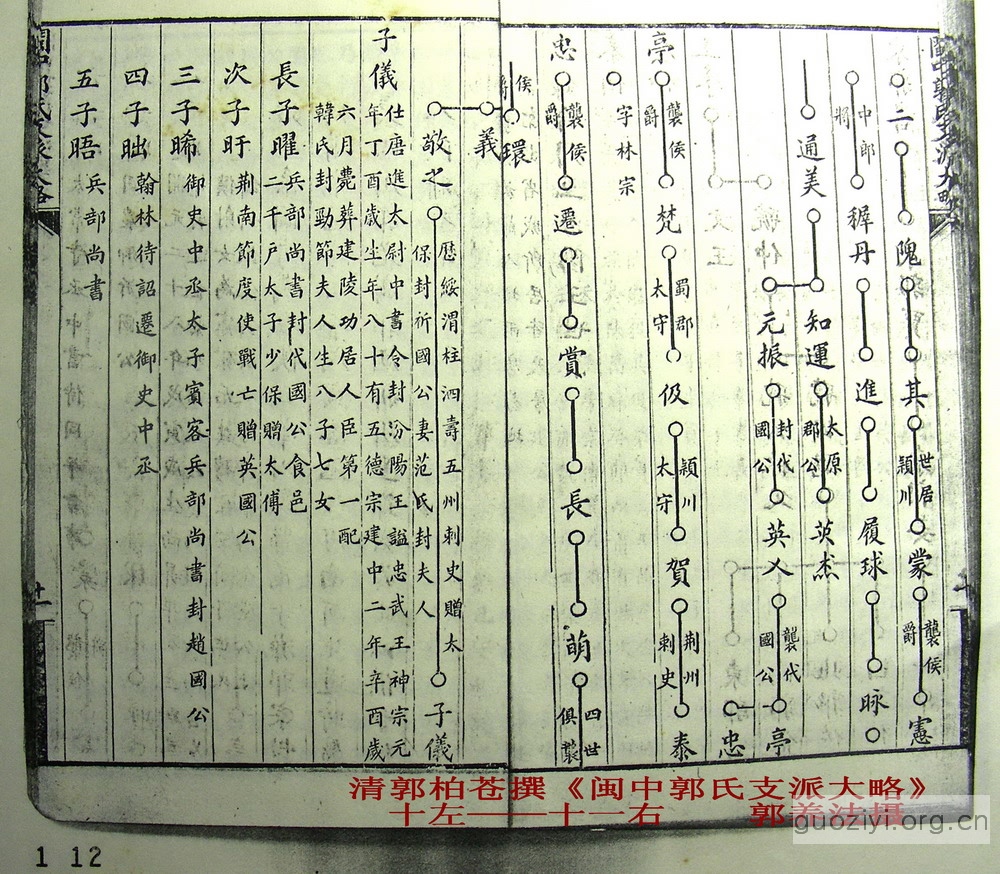 二 隗 其 世居潁川 蒙 襲侯爵 憲
中郎將 穉丹 進 履球 昹
通美 知運 太原郡公 英杰
元振 封代國公 英乂 襲代國公 亭
忠
亭 襲侯爵 梵 蜀郡太守 伋 潁川太守 賀 荆州刺史 泰
字林宗
忠 襲侯爵 遷 賞 長 萌 四世俱襲
侯爵 環
義
敬之 歷綏渭柱泗壽五州刺史贈太
保封祈國公妻范氏封夫人 子儀
子儀 仕唐進太尉中書令封汾陽王謚忠武王神宗元
年丁酉歲生年八十有五德宗建中二年辛酉歲
六月薨葬建陵功居人臣第一配
韓氏封勁節夫人生八子七女
長子曜 兵部尚書封代國公食邑
二千戶太子少保贈太傅
次子旴 荆南節度使戰亡贈英國公
三子晞 御史中丞太子賓客兵部尚書封趙國公
四子昢 翰林待詔遷御史中丞
五子晤 兵部尚書
清郭柏苍撰《闽中郭氏支派大略》
十左——十一右 郭羲法攝
guoziyi.org.cn
1 12